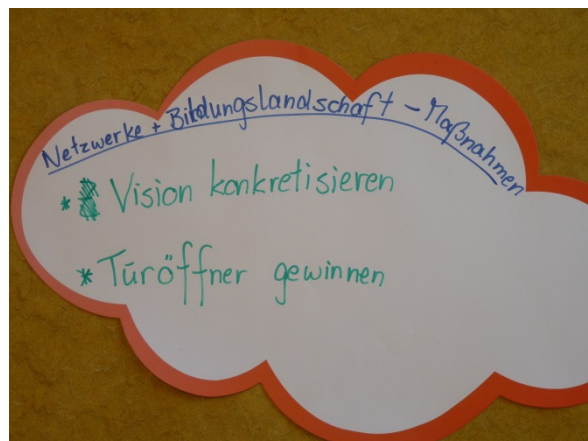 Netzwerke + Bildungslandschaft - Maßnahmen
* Vision konkretisieren
* Türöffner gewinnen